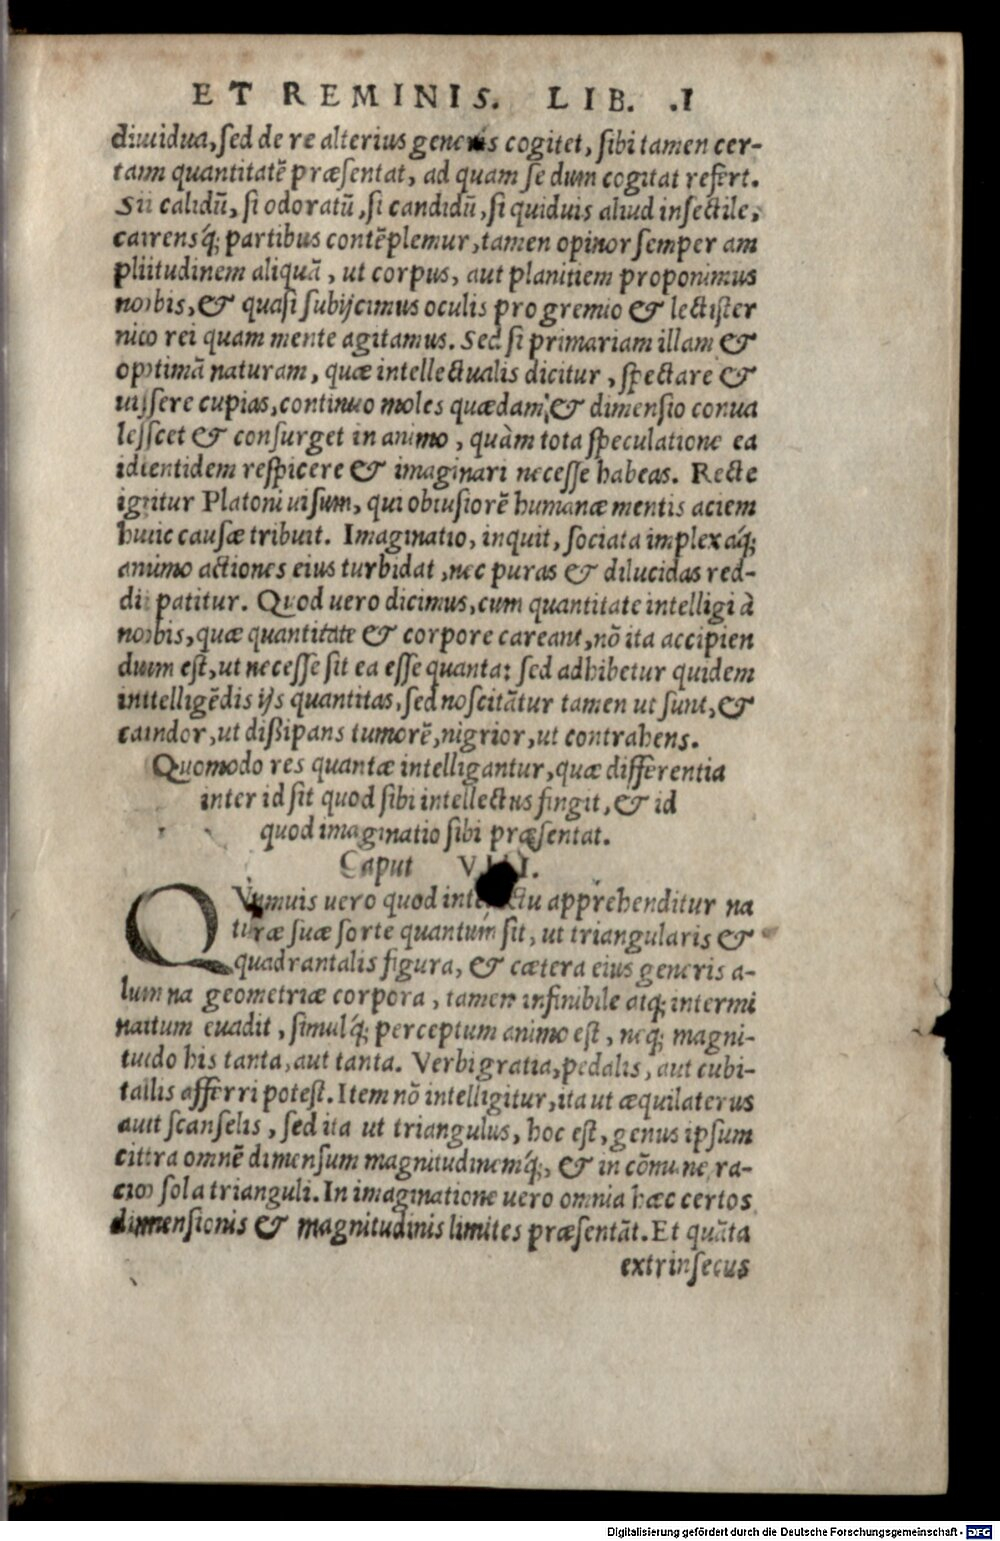 ET REMINIS. LIB. .I
diuidua, sed de re alterius generis cogitet, sibi tamen cer-
tam quantitatē præsentat, ad quam se dum cogitat refert.
Si calidū, si odoratū, si candidū, si quiduis aliud insectile,
carensq́; partibus contēplemur, tamen opinor semper am
plitudinem aliquā, ut corpus, aut planitiem proponimus
nobis, & quasi subijcimus oculis pro gremio & lectister
nio rei quam mente agitamus. Sed si primariam illam &
optimā naturam, quæ intellectualis dicitur, spectare &
uisere cupias, continuo moles quædam, & dimensio conua
lescet & consurget in animo, quàm tota speculatione ea
identidem respicere & imaginari necesse habeas. Recte
igitur Platoni uisum, qui obtusiorē humanæ mentis aciem
huic causæ tribuit. Imaginatio, inquit, sociata implexaq́;
animo actiones eius turbidat, nec puras & dilucidas red-
di patitur. Quod uero dicimus, cum quantitate intelligi à
nobis, quæ quantitate & corpore careant, nō ita accipien
dum est, ut necesse sit ea esse quanta: sed adhibetur quidem
intelligēdis ijs quantitas, sed noscitātur tamen ut sunt, &
candor, ut dißipans tumorē, nigrior, ut contrahens.
Quomodo res quantæ intelligantur, quæ differentia
inter id sit quod sibi intellectus fingit, & id
quod imaginatio sibi præsentat.
Caput VIII.
QVumuis uero quod intellectu apprehenditur na
turæ suæ sorte quantum sit, ut triangularis &
quadrantalis figura, & cætera eius generis a-
lumna geometriæ corpora, tamen infinibile atq; intermi
natum euadit, simulq́; perceptum animo est, neq; magni-
tudo his tanta, aut tanta. Verbi gratia, pedalis, aut cubi-
talis afferri potest. Item nō intelligitur, ita ut æquilaterus
aut scanselis, sed ita ut triangulus, hoc est, genus ipsum
citra omnē dimensum magnitudinemq́;, & in cōmune, ra-
cio sola trianguli. In imaginatione uero omnia hæc certos
dimensionis & magnitudinis limites præsentāt. Et quāta
extrinsecus
Digitalisierung gefördert durch die Deutsche Forschungsgemeinschaft - DFG